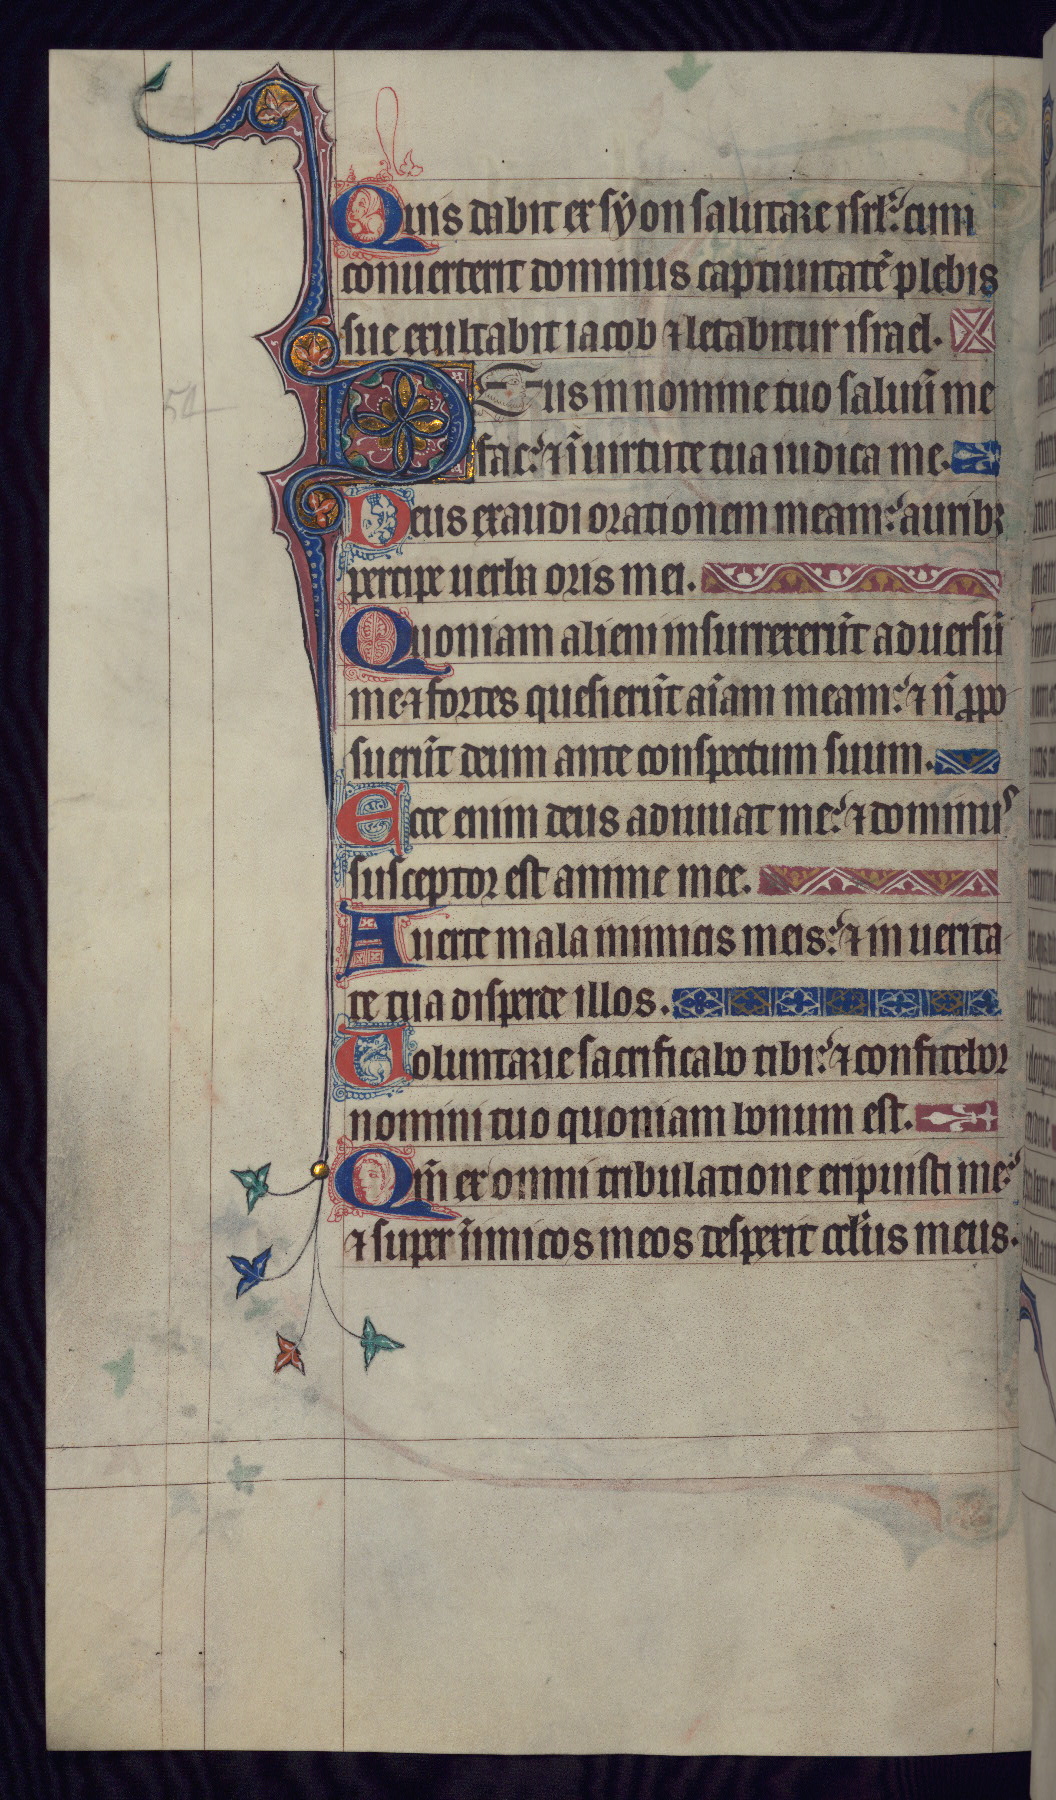 Quis dabit ex syon salutare isrł: cum
conuerterit dominus captiuitatē plebis
sue exultabit iacob ⁊ letabitur israel.
DEus in nomine tuo saluū me
fac: ⁊ ī uirtute tua iudica me.
Deus exaudi orationem meam: aurib3
percipe uerba oris mei.
Quoniam alieni insurrexerūt aduersū
me ⁊ fortes quesierūt aīam meam: ⁊ ñ ꝓpo
suerūt deum ante conspectum suum.
Ecce enim deus adiuuat me: ⁊ dominus
susceptor est anime mee.
Auerte mala inimicis meis: ⁊ in uerita
te tua disperde illos.
Uoluntarie sacrificabo tibi: ⁊ confitebor
nomini tuo quoniam bonum est.
Qm̄ ex omni tribulatione eripuisti me:
⁊ super īimicos meos despexit oclūs meus.